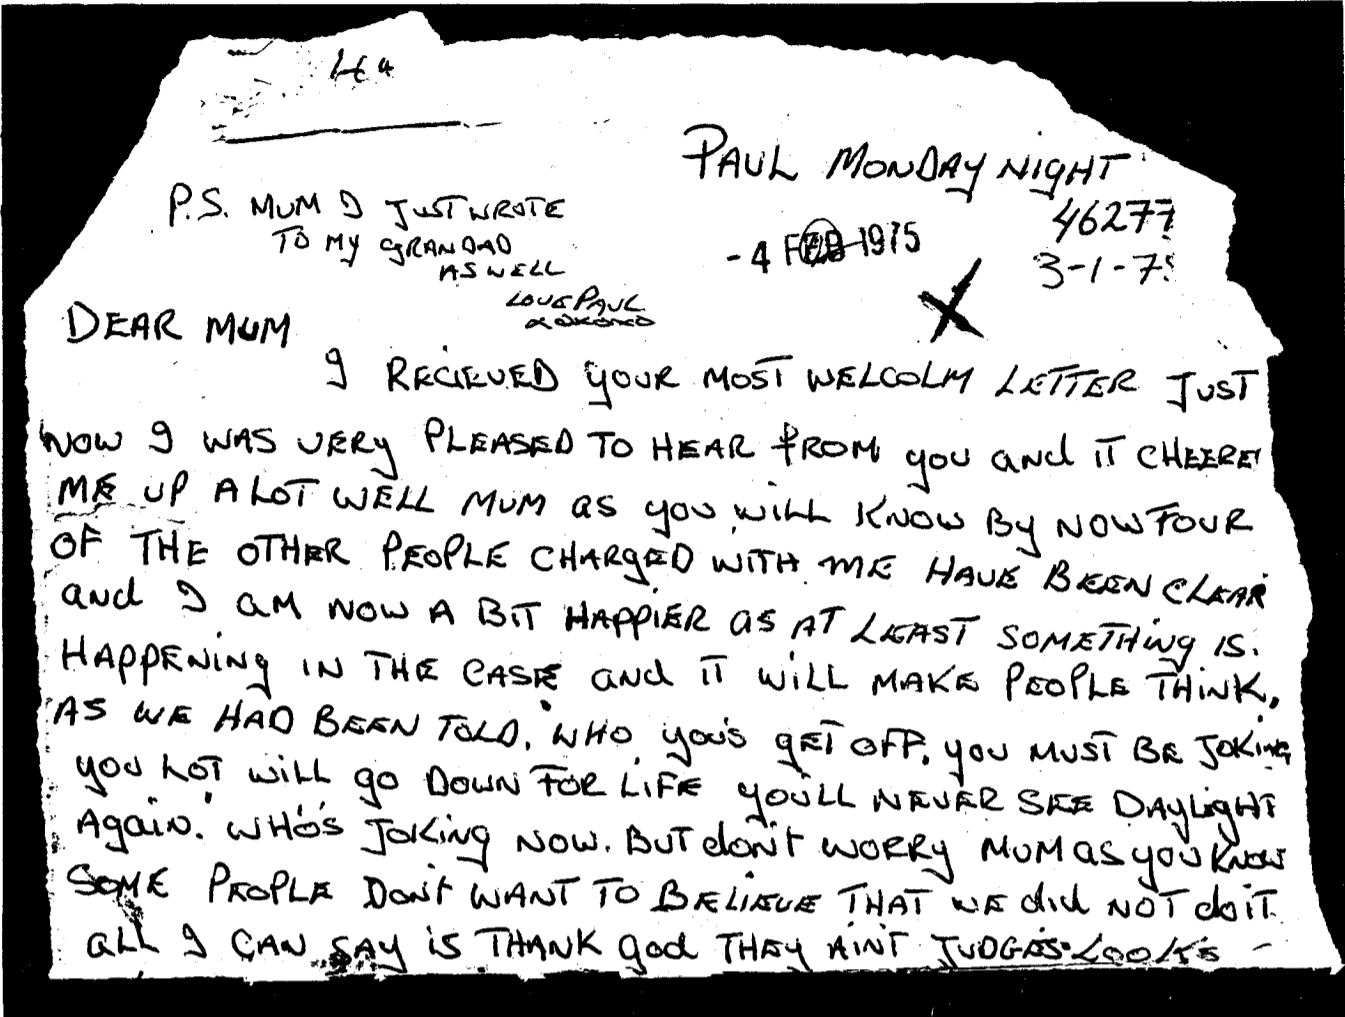 PAUL MONDAY NIGHT
46277
3-1-75
- 4 FEB 1975
P.S. MUM I JUST WROTE
TO MY GRANDAD
AS WELL
LOVE PAUL
XOXOXO
DEAR MUM
I RECIEVED YOUR MOST WELCOLM LETTER JUST
NOW I WAS VERY PLEASED TO HEAR FROM you and IT CHEERE
ME UP A LOT WELL MUM as you WiLL KNOW By NOW FOUR
OF THE OTHER PEOPLE CHARgED WITH ME HAVE BEEN CLEAR
and I am NOW A BiT HAPPiER as AT LEAST SOMETHing iS.
HAPPENiNg IN THE CASE and IT WiLL MAKE PEOPLE THiNK,
AS WE HAD BEEN TOLD. WHO you's gET OFF. you MUST BE JOKing
you LOT WiLL go DOWN FOR LiFE you'LL NEVER SEE DAyLigHT
Again. WHO'S JOKing NOW. BUT don't WORRy MUM as you KNOW
SOME PEOPLE Don't WANT TO BELIEVE THAT WE did NOT do iT.
aLL I CAN SAY iS THANK god THEY AiNT JUDGES. LOOKS -